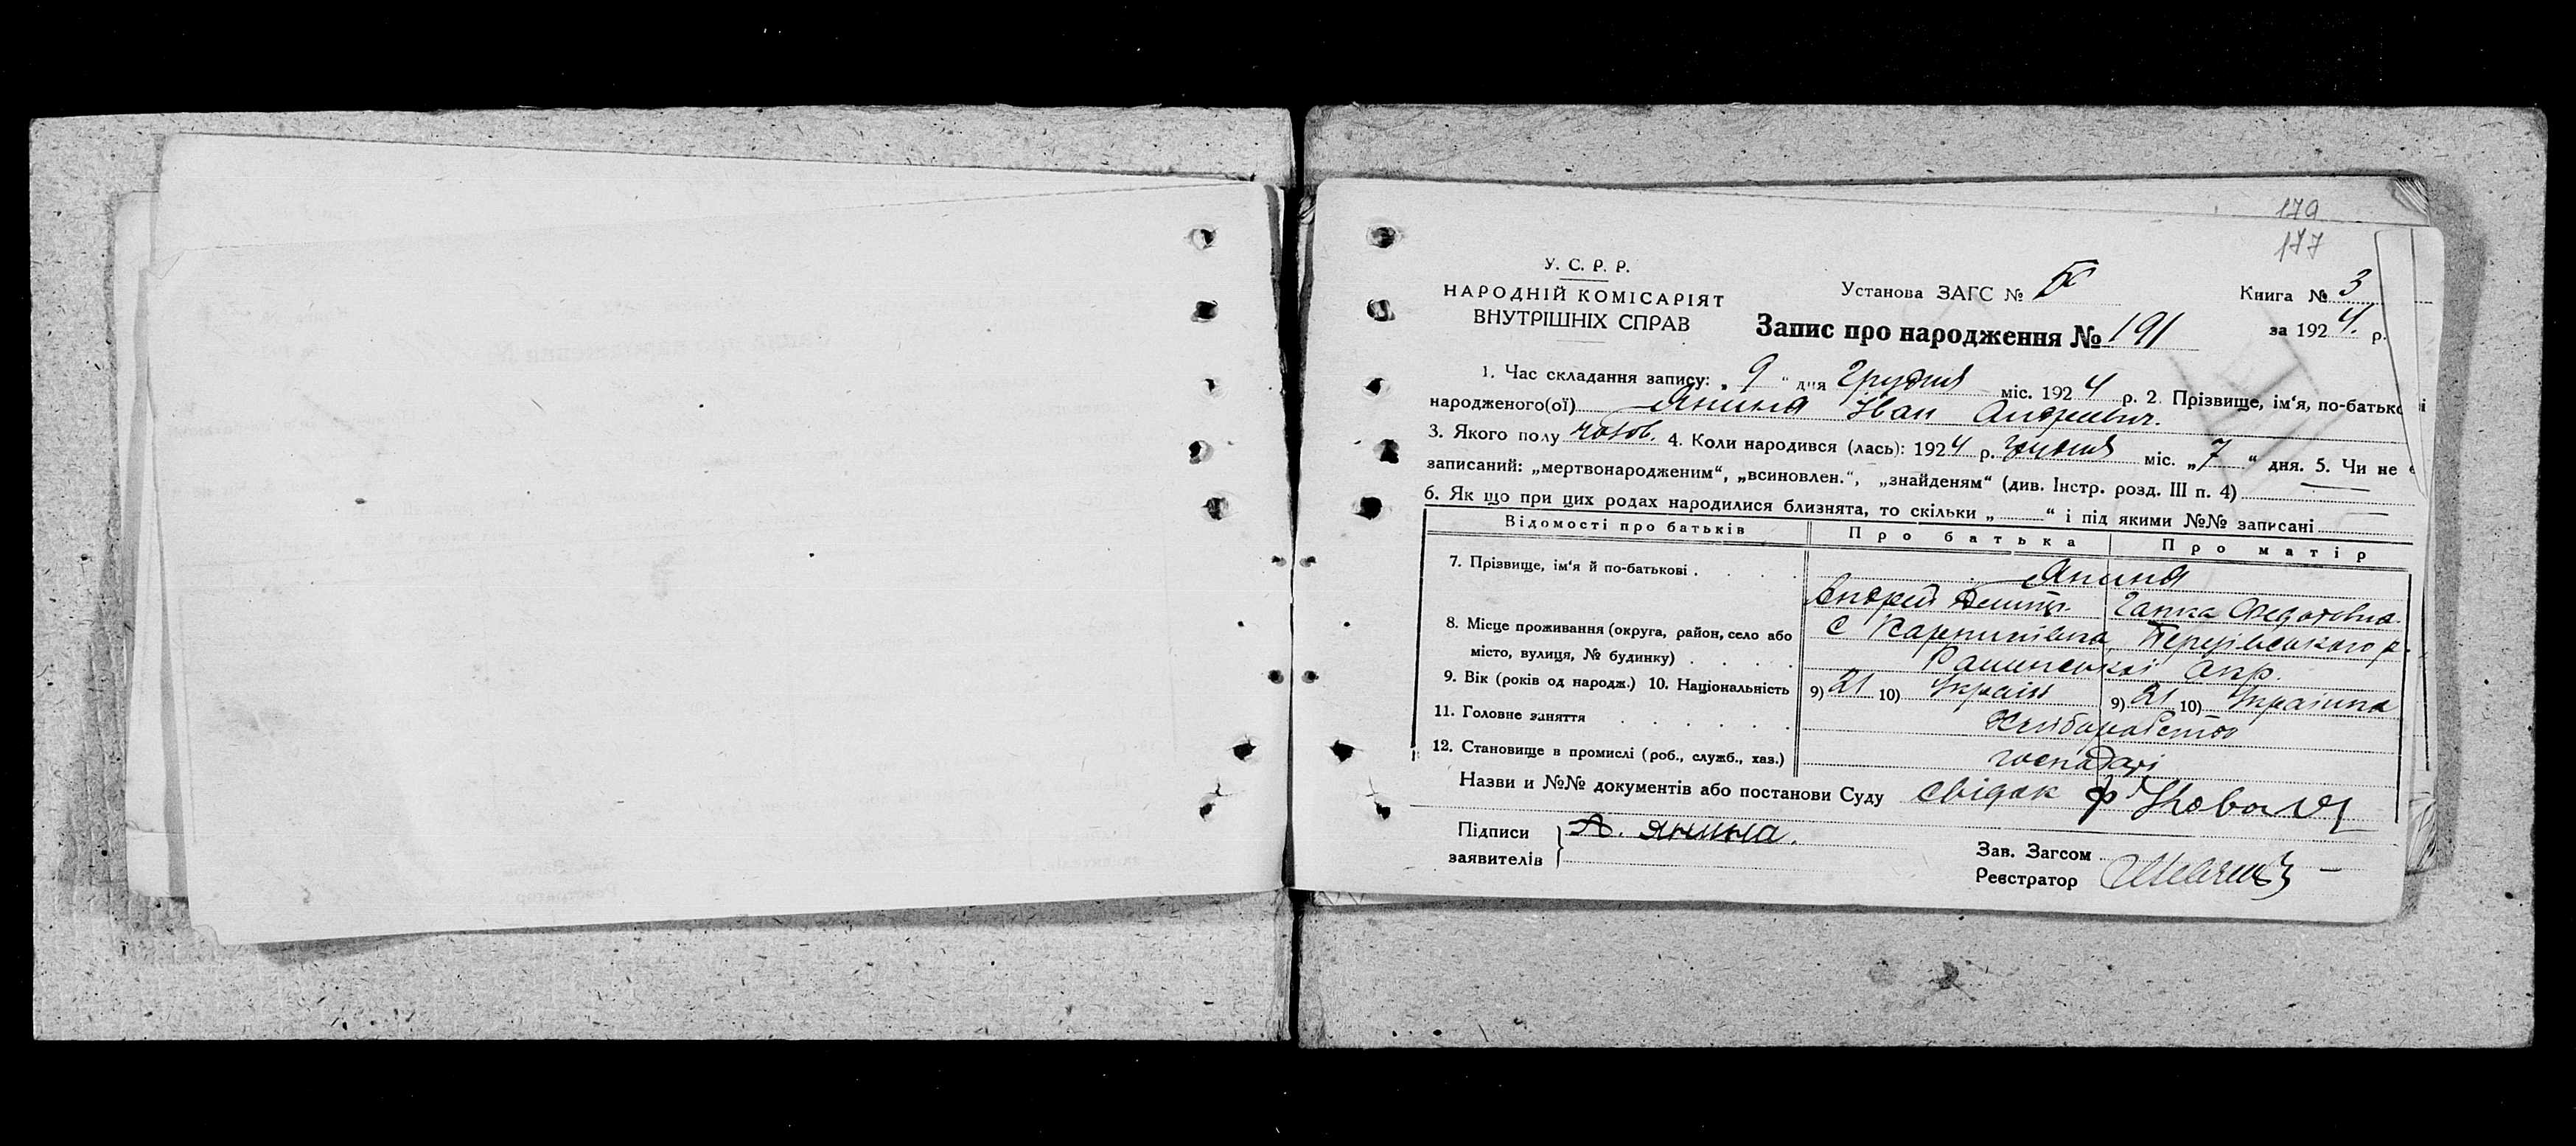 179
177
У. С. Р. Р.
НАРОДНІЙ КОМІСАРІЯТ
ВНУТРІШНІХ СПРАВ
Установа ЗАГС №
Книга № 3
Запис про народження № 191
за 1924 р.
1. Час складання запису: „ 9 “ дня Грудня міс. 1924 р. 2. Прізвище, ім‘я, по-батькові
народженого(ої) Янина Іван Андреевич.
3. Якого полу чолов. 4. Коли народився (лась): 1924 р. грудня міс. „ 7 “ дня. 5. Чи не є
записаний: „мертвонародженим“, „всиновлен.“, „знайденям“ (див. Інстр. розд. III п. 4)
6. Як що при цих родах народилися близнята, то скільки „ “ і під якими №№ записані
Відомості про батьків Про батька Про матір
7. Прізвище, ім‘я й по-батькові . . . . Янина
Андрей Дмитр. Гапка Федотовна.
8. Місце проживання (округа, район, село або с Карпилівка, р.
місто, вулиця, № будинку) . . . . Раменської окр.
9. Вік (років од народж.) 10. Національність 9) 21 10) Україн 9) 21 10) Україинка
11. Головне заняття . . . . . Хліборобство
12. Становище в промислі (роб., служб., хаз.) господарі
Назви и №№ документів або постанови Суду свідок ф Коваль
Підписи А. Янина.
заявителів
Зав. Загсом
Реєстратор